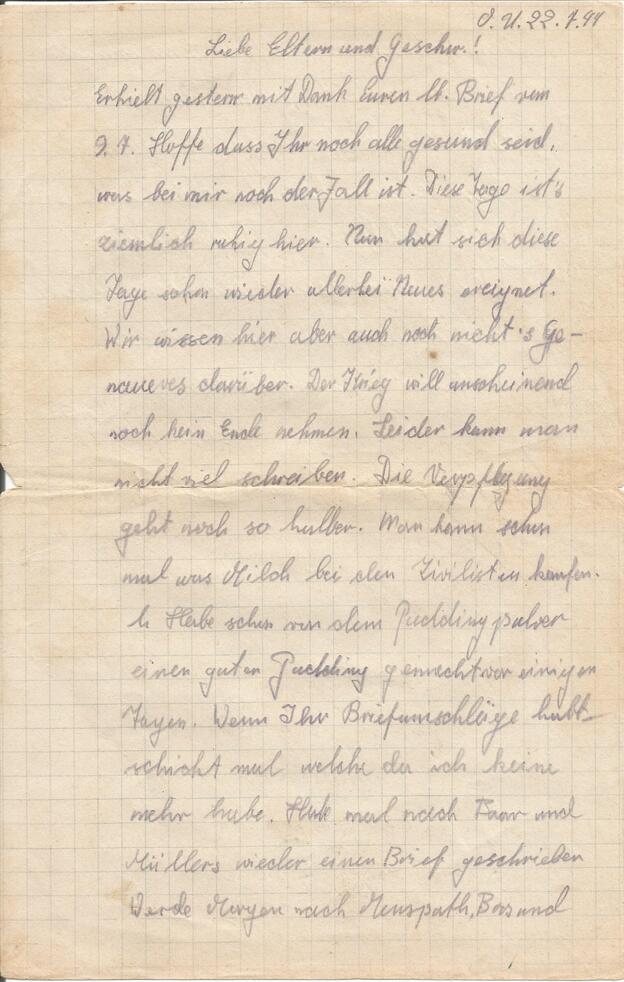 O. U. 22.7.44
Liebe Eltern und Geschw.!
Erhielt gestern mit Dank Euren lb. Brief vom
9.7. Hoffe dass Ihr noch alle gesund seid,
was bei mir noch der Fall ist. Diese Tage ist's
ziemlich ruhig hier. Nun hat sich diese
Tage schon wieder allerhei Neues ereignet.
Wir wissen hier aber auch noch nicht's Ge-
naueres darüber. Der Krieg will anscheinend
noch kein Ende nehmen. Leider kann man
nicht viel schreiben. Die Verpflegung
geht noch so halber. Man kann schon
mal was Milch bei den Zivilisten kaufen.
Habe schon von dem Puddingpulver
einen guten Pudding gemacht vor einigen
Tagen. Wenn Ihr Briefumschläge habt
schickt mal welche da ich keine
mehr habe. Habe mal nach und
Müllers wieder einen Brief geschrieben
Werde Morgen nach Meuspath, Bos und